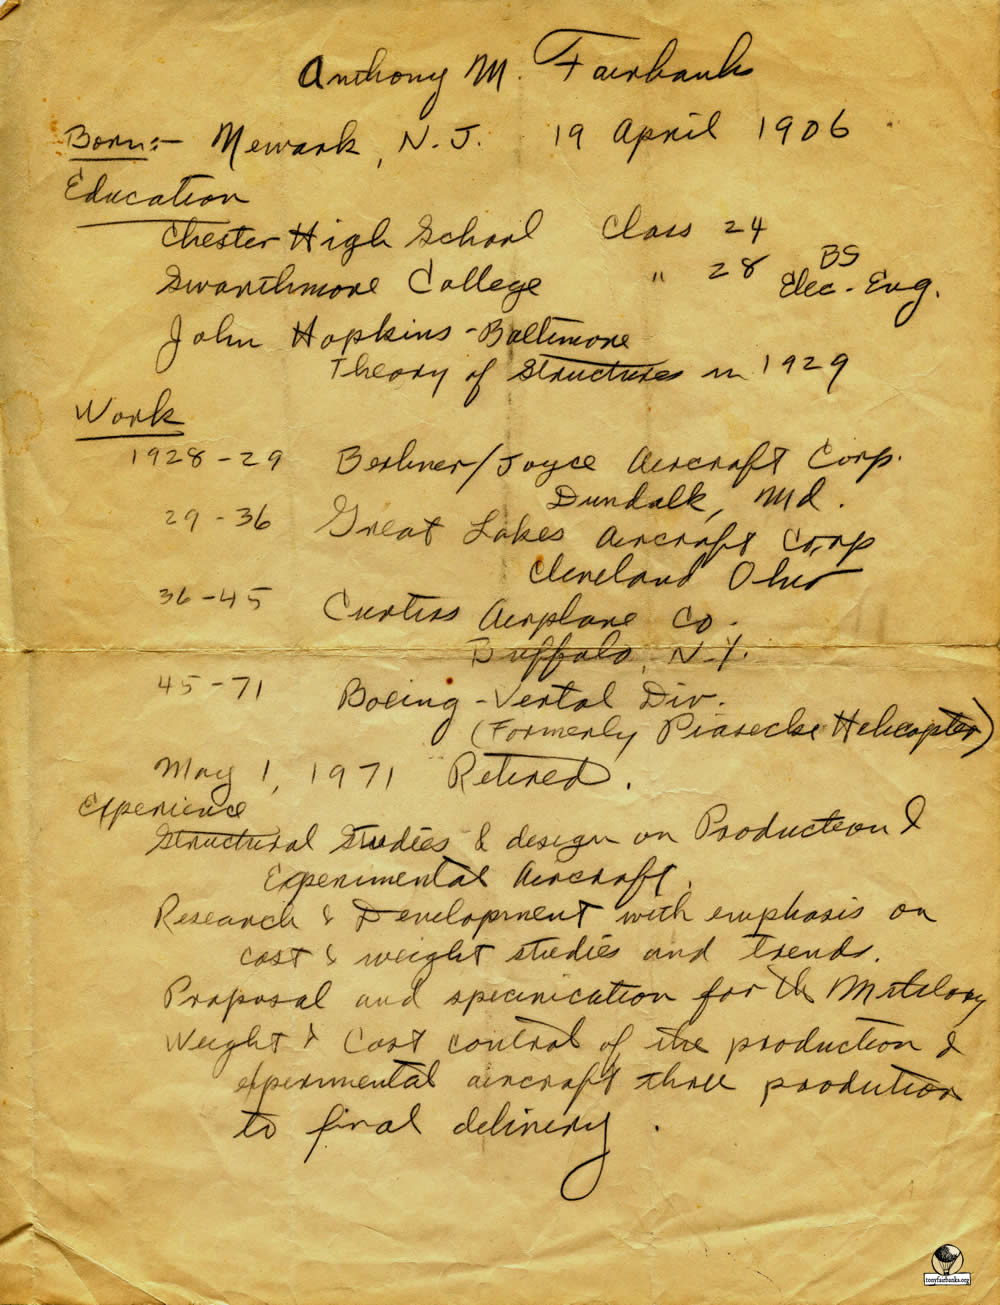 Anthony M. Fairbanks
Born:- Newark, N.J. 19 April 1906
Education
Chester High School Class 24
Swarthmore College " 28 BS Elec-Eng.
John Hopkins-Baltimore
Theory of Structures in 1929
Work
1928-29 Berliner/Joyce Aircraft Corp.
Dundalk, Md.
29-36 Great Lakes Aircraft Corp
Cleveland Ohio
36-45 Curtiss Airplane Co.
Buffalo, N.Y.
45-71 Boeing-Vertol Div.
(Formerly Piasecki Helicopter)
May 1, 1971 Retired.
Experience
Structural Studies & design on Production &
Experimental Aircraft.
Research & Development with emphasis on
cost & weight studies and trends.
Proposal and specification for the
Weight & Cost control of the production &
experimental aircraft thru prodution
to final delivery.
tonyfairbanks.org